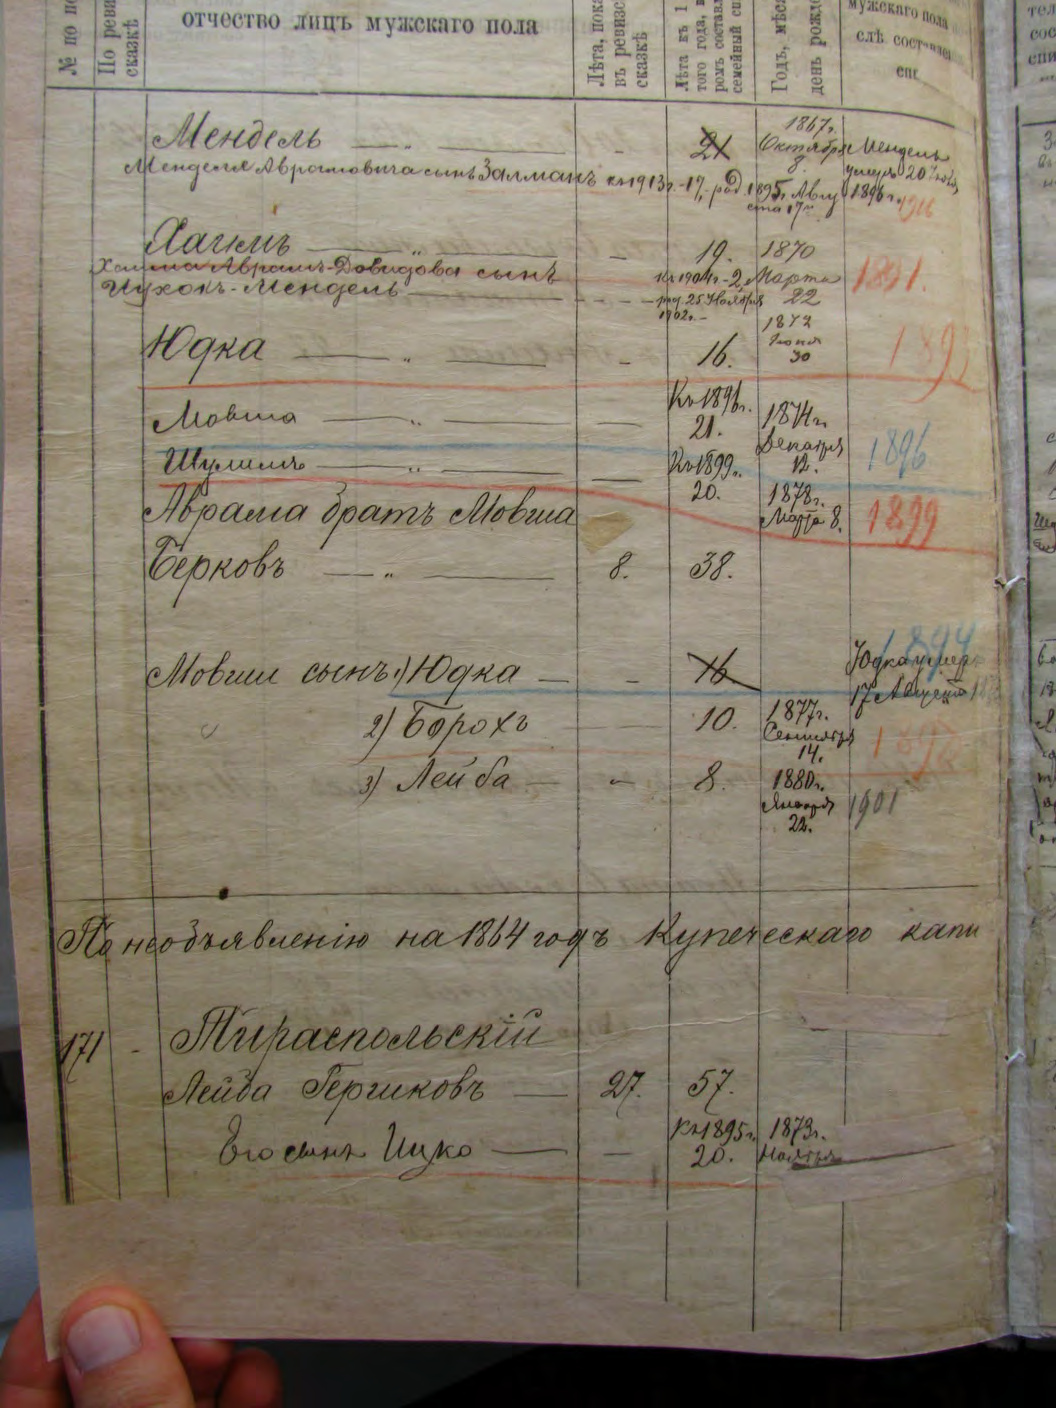 № по по
По реви
сказкѣ
отчество лицъ мужскаго пола
Лѣта, пока
въ ревизс
сказкѣ
Лѣта къ 1
того года, в
ромъ состав
семейный сп
Годъ, мѣся
день рожд
мужскаго пола
слѣ составлен
спи
Мендель — „ — - 21 1867г. Октября 8. Мендель умеръ 20 1896г.
Менделя Аврамовича сынъ Залманъ къ 1913г.-17, род. 1895г. Авгу
ста 17
1916
Хаимъ — „ — - 19. 1870 Марта 22 1891.
Хаима Аврамъ-Довидова сынъ къ 1904г.-2,
Ицхокъ-Мендель — род. 25 Ноября 1902г.
Юдка — „ — - 16. 1872 Іюня 30 1893
Мовша — „ — — Къ 1896г. 21. 1874г. Декабря 12. 1896
Шулимъ — „ — — Къ 1899г. 20. 1878г. Марта 8. 1899
Аврама братъ Мовша
Берковъ — „ — 8. 38.
1894
Мовши сынъ 1) Юдка — - 16 Юдка умер
17 Августа
2) Борохъ — 10. 1877г. Сентября 14. 1898
3) Лейба — „ 8. 1880г. Января 22. 1901
По необъявленію на 1864 годъ Купеческаго капи
171 - Тираспольскій
Лейба Гершковъ — 27. 57.
Его сынъ Ицко — — Къ 1895г. 20. 1873г. Ноября